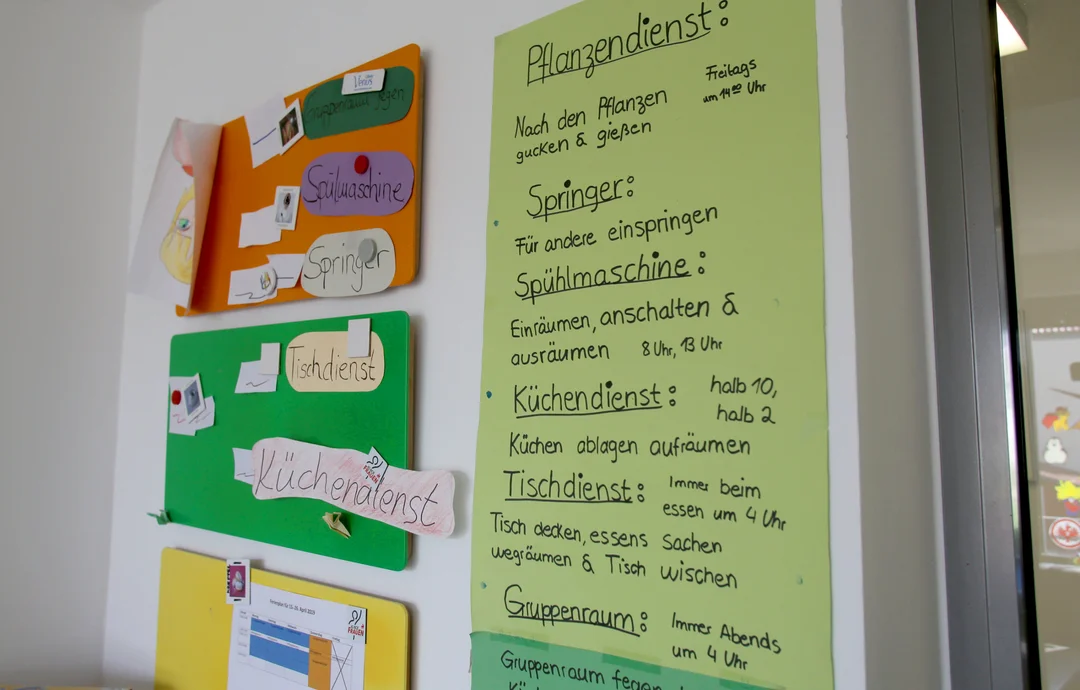 Gruppenraum fegen
Spülmaschine
Springer
Tischdienst
Küchendienst
FRAUEN
FRAUEN
Pflanzendienst:
Freitags
um 14⁰⁰ Uhr
Nach den Pflanzen
gucken & gießen
Springer:
Für andere einspringen
Spühlmaschine:
Einräumen, anschalten &
ausräumen 8 Uhr, 13 Uhr
Küchendienst: halb 10,
halb 2
Küchen ablagen aufräumen
Tischdienst: Immer beim
essen um 4 Uhr
Tisch decken, essens Sachen
wegräumen & Tisch wischen
Gruppenraum: Immer Abends
um 4 Uhr
Gruppenraum fegen